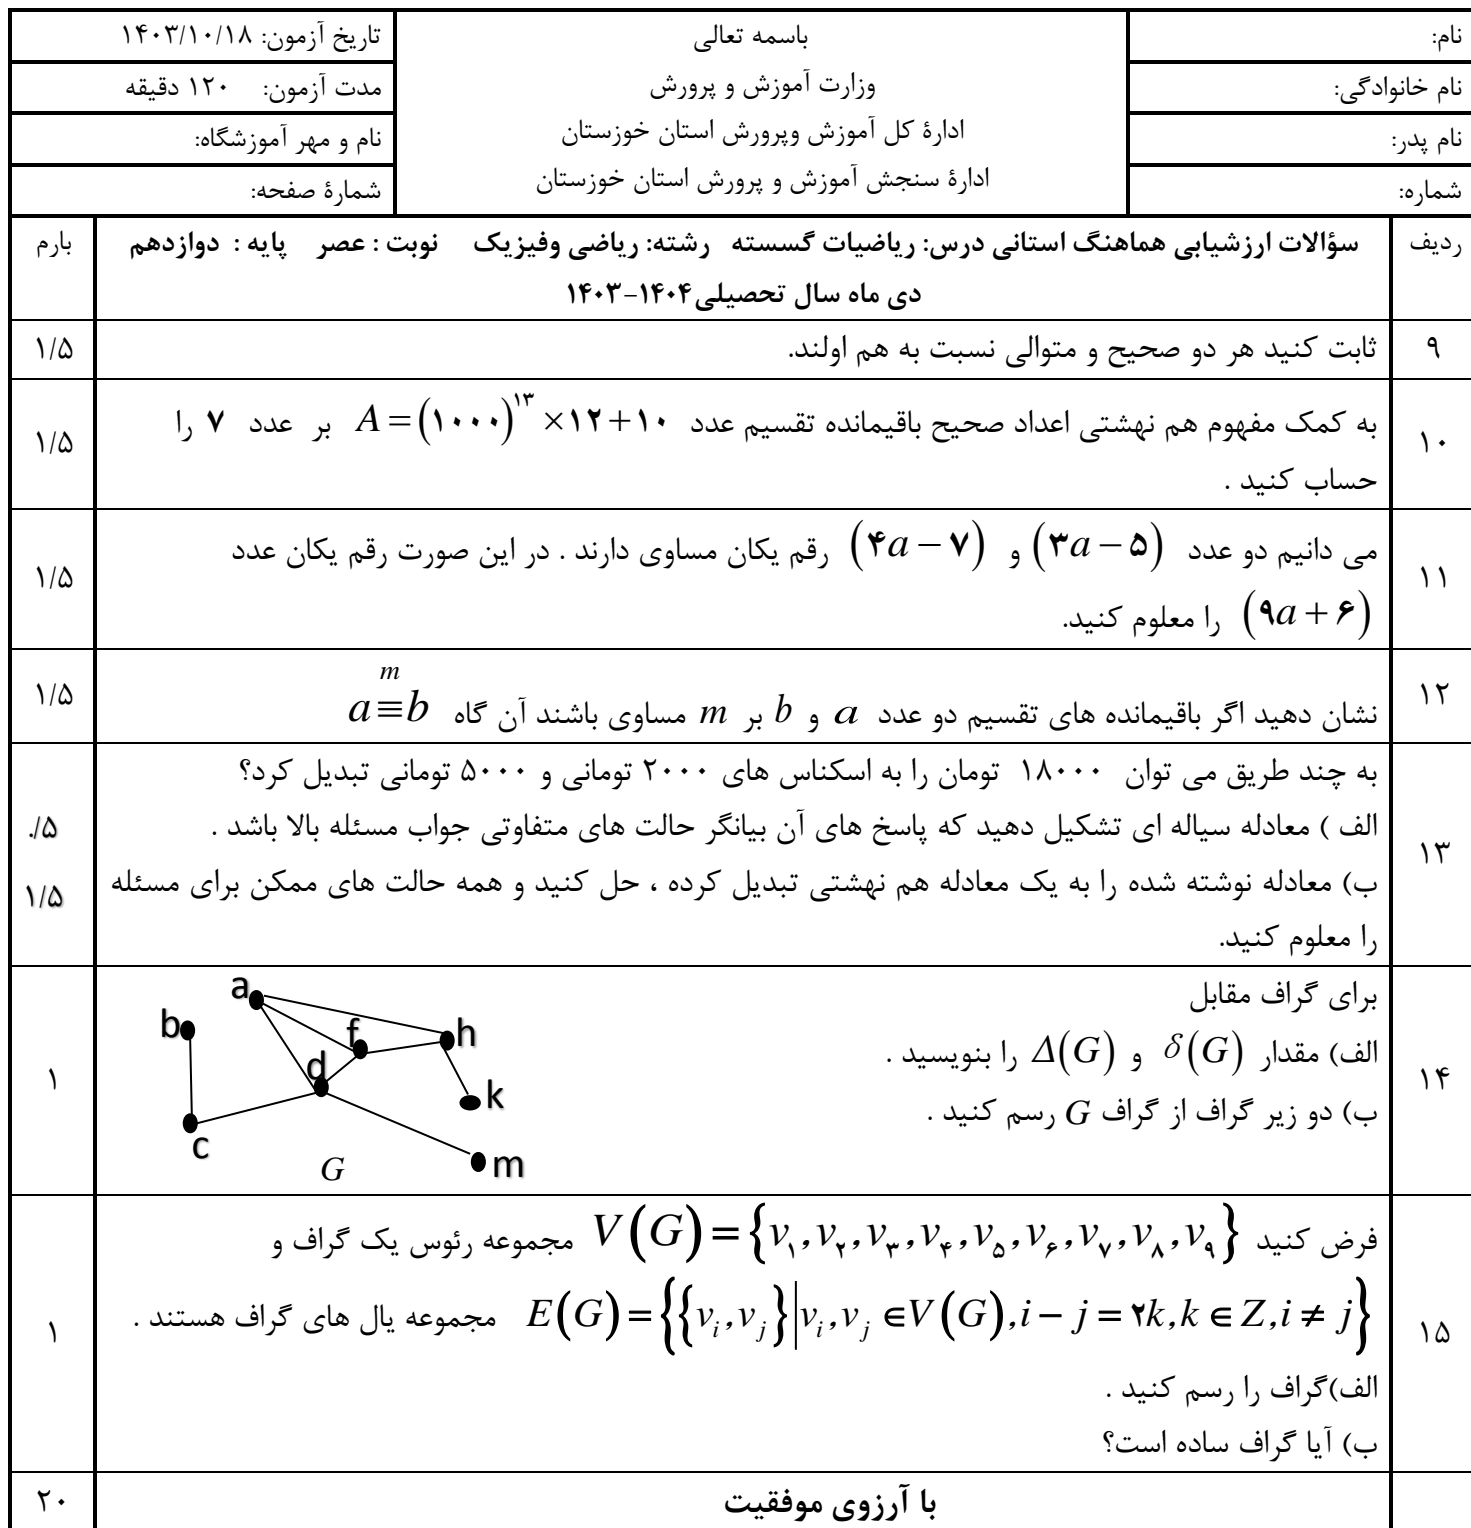 نام:
باسمه تعالی
تاریخ آزمون: ۱۴۰۳/۱۰/۱۸
نام خانوادگی:
وزارت آموزش و پرورش
مدت آزمون: ۱۲۰ دقیقه
نام پدر:
ادارهٔ کل آموزش وپرورش استان خوزستان
نام و مهر آموزشگاه:
شماره:
ادارهٔ سنجش آموزش و پرورش استان خوزستان
شمارهٔ صفحه:
ردیف
سؤالات ارزشیابی هماهنگ استانی درس: ریاضیات گسسته رشته: ریاضی وفیزیک نوبت : عصر پایه : دوازدهم
بارم
دی ماه سال تحصیلی۱۴۰۴-۱۴۰۳
۹
ثابت کنید هر دو صحیح و متوالی نسبت به هم اولند.
۱/۵
۱۰
به کمک مفهوم هم نهشتی اعداد صحیح باقیمانده تقسیم عدد A = (۱۰۰۰)^۱۳ × ۱۲ + ۱۰ بر عدد ۷ را
حساب کنید .
۱/۵
۱۱
می دانیم دو عدد (۳a − ۵) و (۴a − ۷) رقم یکان مساوی دارند . در این صورت رقم یکان عدد
(۹a + ۶) را معلوم کنید.
۱/۵
۱۲
نشان دهید اگر باقیمانده های تقسیم دو عدد a و b بر m مساوی باشند آن گاه a ≡^m b
۱/۵
۱۳
به چند طریق می توان ۱۸۰۰۰ تومان را به اسکناس های ۲۰۰۰ تومانی و ۵۰۰۰ تومانی تبدیل کرد؟
الف ) معادله سیاله ای تشکیل دهید که پاسخ های آن بیانگر حالت های متفاوتی جواب مسئله بالا باشد .
./۵
ب) معادله نوشته شده را به یک معادله هم نهشتی تبدیل کرده ، حل کنید و همه حالت های ممکن برای مسئله
۱/۵
را معلوم کنید.
۱۴
برای گراف مقابل
الف) مقدار δ(G) و Δ(G) را بنویسید .
ب) دو زیر گراف از گراف G رسم کنید .
۱
a
b
f
h
d
k
c
m
G
۱۵
فرض کنید V(G) = {v۱, v۲, v۳, v۴, v۵, v۶, v۷, v۸, v۹} مجموعه رئوس یک گراف و
E(G) = {{v_i, v_j} | v_i, v_j ∈ V(G), i − j = ۲k, k ∈ Z, i ≠ j} مجموعه یال های گراف هستند .
الف)گراف را رسم کنید .
ب) آیا گراف ساده است؟
۱
با آرزوی موفقیت
۲۰